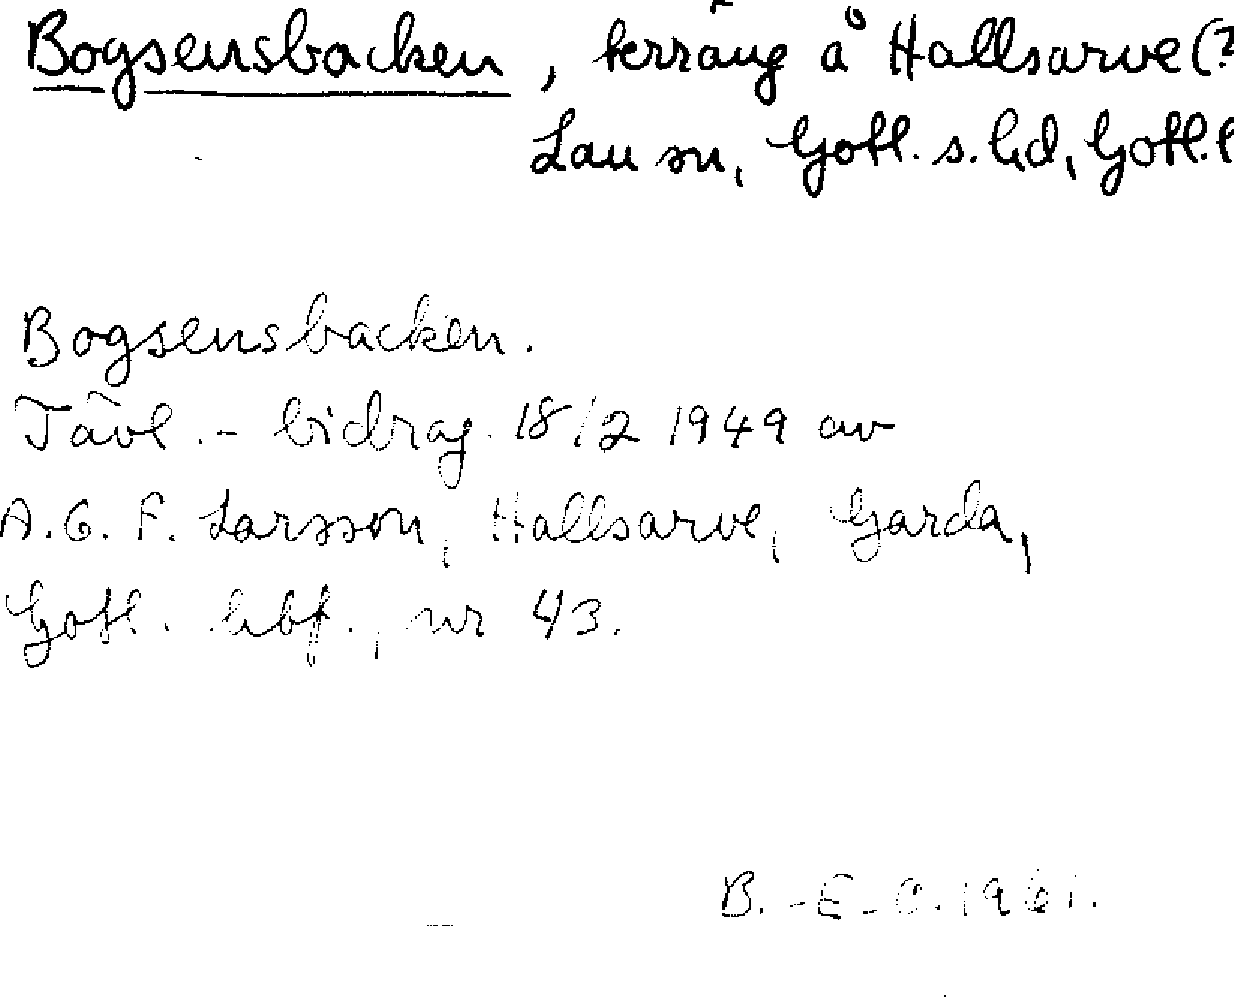 Bogsensbacken, terräng å Hallsarve (?
Lau sn, Gotl. s. hd, Gotl. l
Bogsensbacken.
Tävl.-bidrag 18/2 1949 av
A.G.F. Larsson, Hallsarve, Garda,
Gotl. hbf., nr 43.
B.-E-O. 1961.